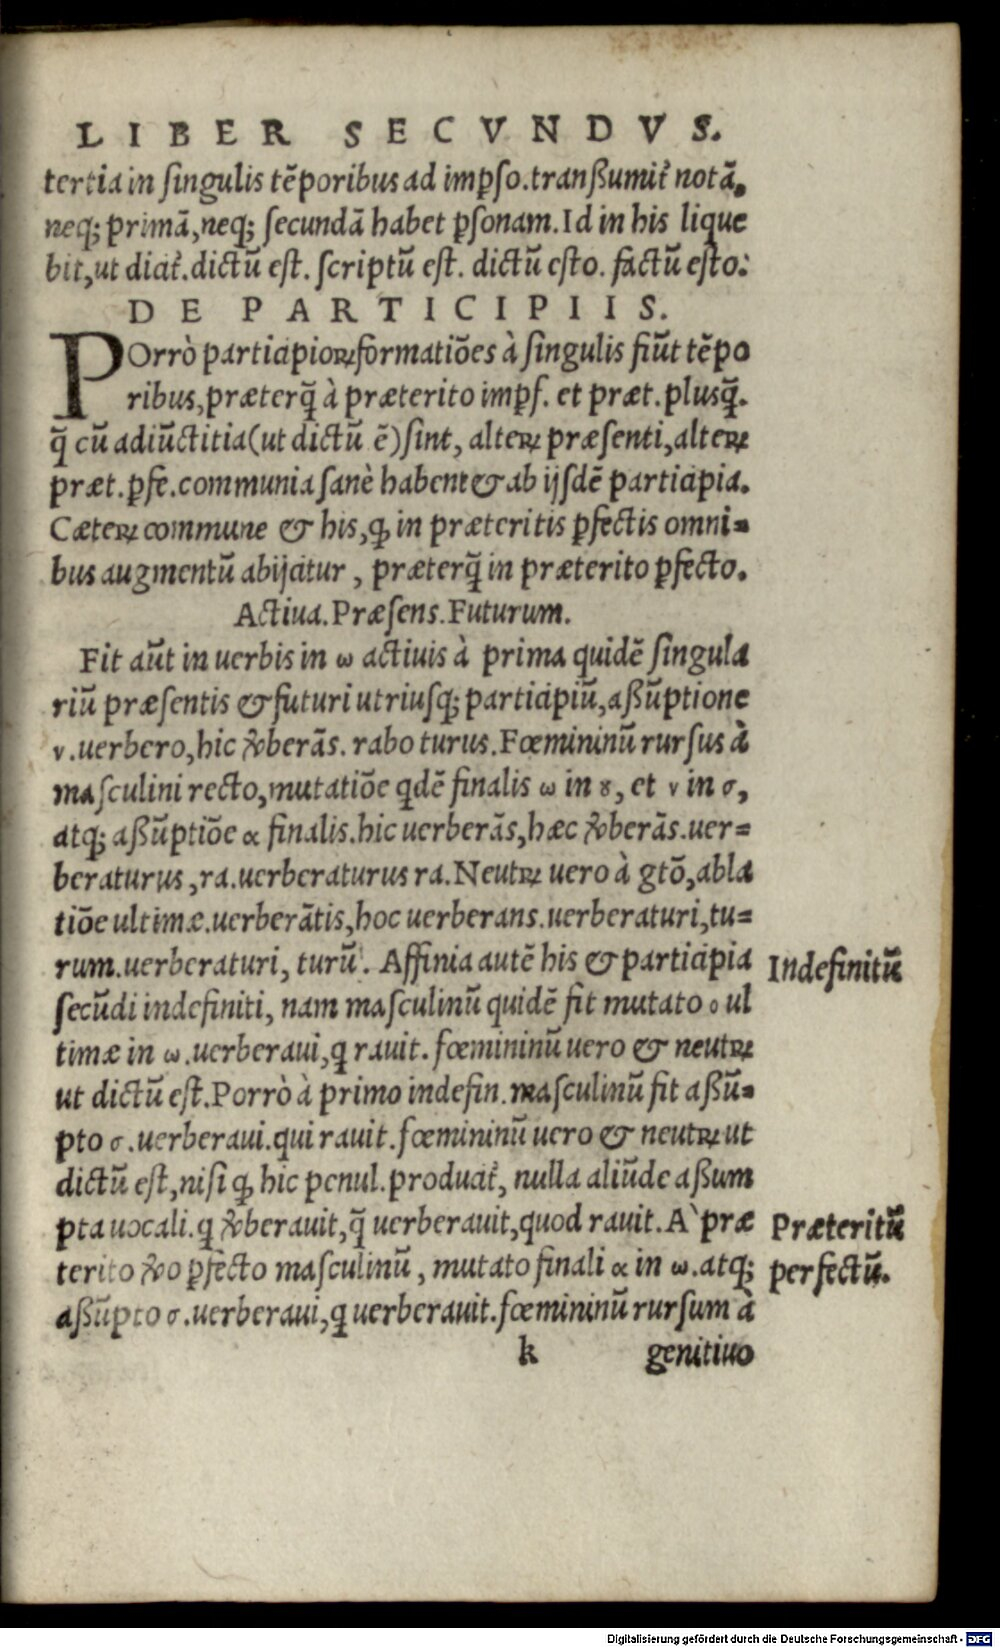 LIBER SECVNDVS.
tertia in singulis tẽporibus ad imꝑso.transsumit᷑ notã,
neq; primã, neq; secundã habet ꝑsonam. Id in his lique
bit, ut dicit᷑.dictũ est. scriptũ est. dictũ esto. factũ esto:
DE PARTICIPIIS.
POrrò participioꝝ formatiões à singulis fiũt tẽpo
ribus, præterq̃ à præterito imꝑf. et præt. plusq̃.
q̃ cũ adiũctitia (ut dictũ ẽ) sint, alteꝝ præsenti, alteꝝ
præt. ꝑfe. communia sanè habent & ab ijsdẽ participia.
Cæteꝝ commune & his, ꝙ in præteritis ꝑfectis omni=
bus augmentũ abijcitur, præterq̃ in præterito ꝑfecto.
Actiua. Præsens. Futurum.
Fit aũt in uerbis in ω actiuis à prima quidẽ singula
riũ præsentis & futuri utriusq; participiũ, assũptione
ν. uerbero, hic ꝟberãs. rabo turus. Fœmininũ rursus à
masculini recto, mutatiõe qdẽ finalis ω in ȣ, et ν in σ,
atq; assũptiõe α finalis. hic uerberãs, hæc ꝟberãs. uer=
beraturus, ra. uerberaturus ra. Neutꝝ uero à gtõ, abla
tiõe ultimæ. uerberãtis, hoc uerberans. uerberaturi, tu=
rum. uerberaturi, turũ. Affinia autẽ his & participia
secũdi indefiniti, nam masculinũ quidẽ fit mutato ο ul
timæ in ω. uerberaui, q rauit. fœmininũ uero & neutꝝ
ut dictũ est. Porrò à primo indefin. masculinũ fit assũ=
pto σ. uerberaui. qui rauit. fœmininũ uero & neutꝝ ut
dictũ est, nisi ꝙ hic penul. producit᷑, nulla aliũde assum
pta uocali. q ꝟberauit, q̃ uerberauit, quod rauit. A` præ
terito ꝟo ꝑfecto masculinũ, mutato finali α in ω. atq;
assũpto σ. uerberaui, q uerberauit. fœmininũ rursum à
k genitiuo
Indefinitũ
Præteritũ
perfectũ.
Digitalisierung gefördert durch die Deutsche Forschungsgemeinschaft - DFG